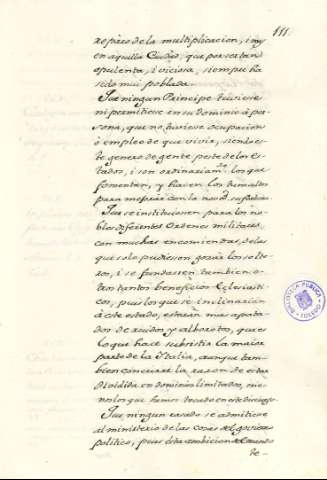 111.
reparo de la multiplicacion, i mui
en aquella Ciudad, que por ser tan
opulenta, i viciosa, siempre ha
sido mui poblada.
Que ningun Principe tuviese
ni permitiese en su dominio á per-
sona, que no tuviese ocupacion
ó empleo de que vivir, siendo es-
te genero de gente peste de los Es-
tados, i son ordinariam.te los que
fomentan, y hacen los tumultos
para mejorar con la noved.
Que se instituiesen para los no-
bles diferentes Ordenes militares,
con muchas encomiendas, de las
que solo pudiesen gozar los solte-
ros, i se fundasen tambien o-
tros tantos beneficios Eclesiasti-
cos, pues los que se inclinarian
á este estado, estarian mas aparta-
dos de ruidos y alborotos, que es
lo que hace subsistir la maior
parte de la Italia, aunque tam-
bien concurre la razon de estar
dividida en dominios limitados, me-
nos los que hemos tocado en este discurso.
Que ningun casado se admitiese
al ministerio de las cosas del govierno
politico, pues esta ambicion
de-
BIBLIOTECA PUBLICA
TOLEDO